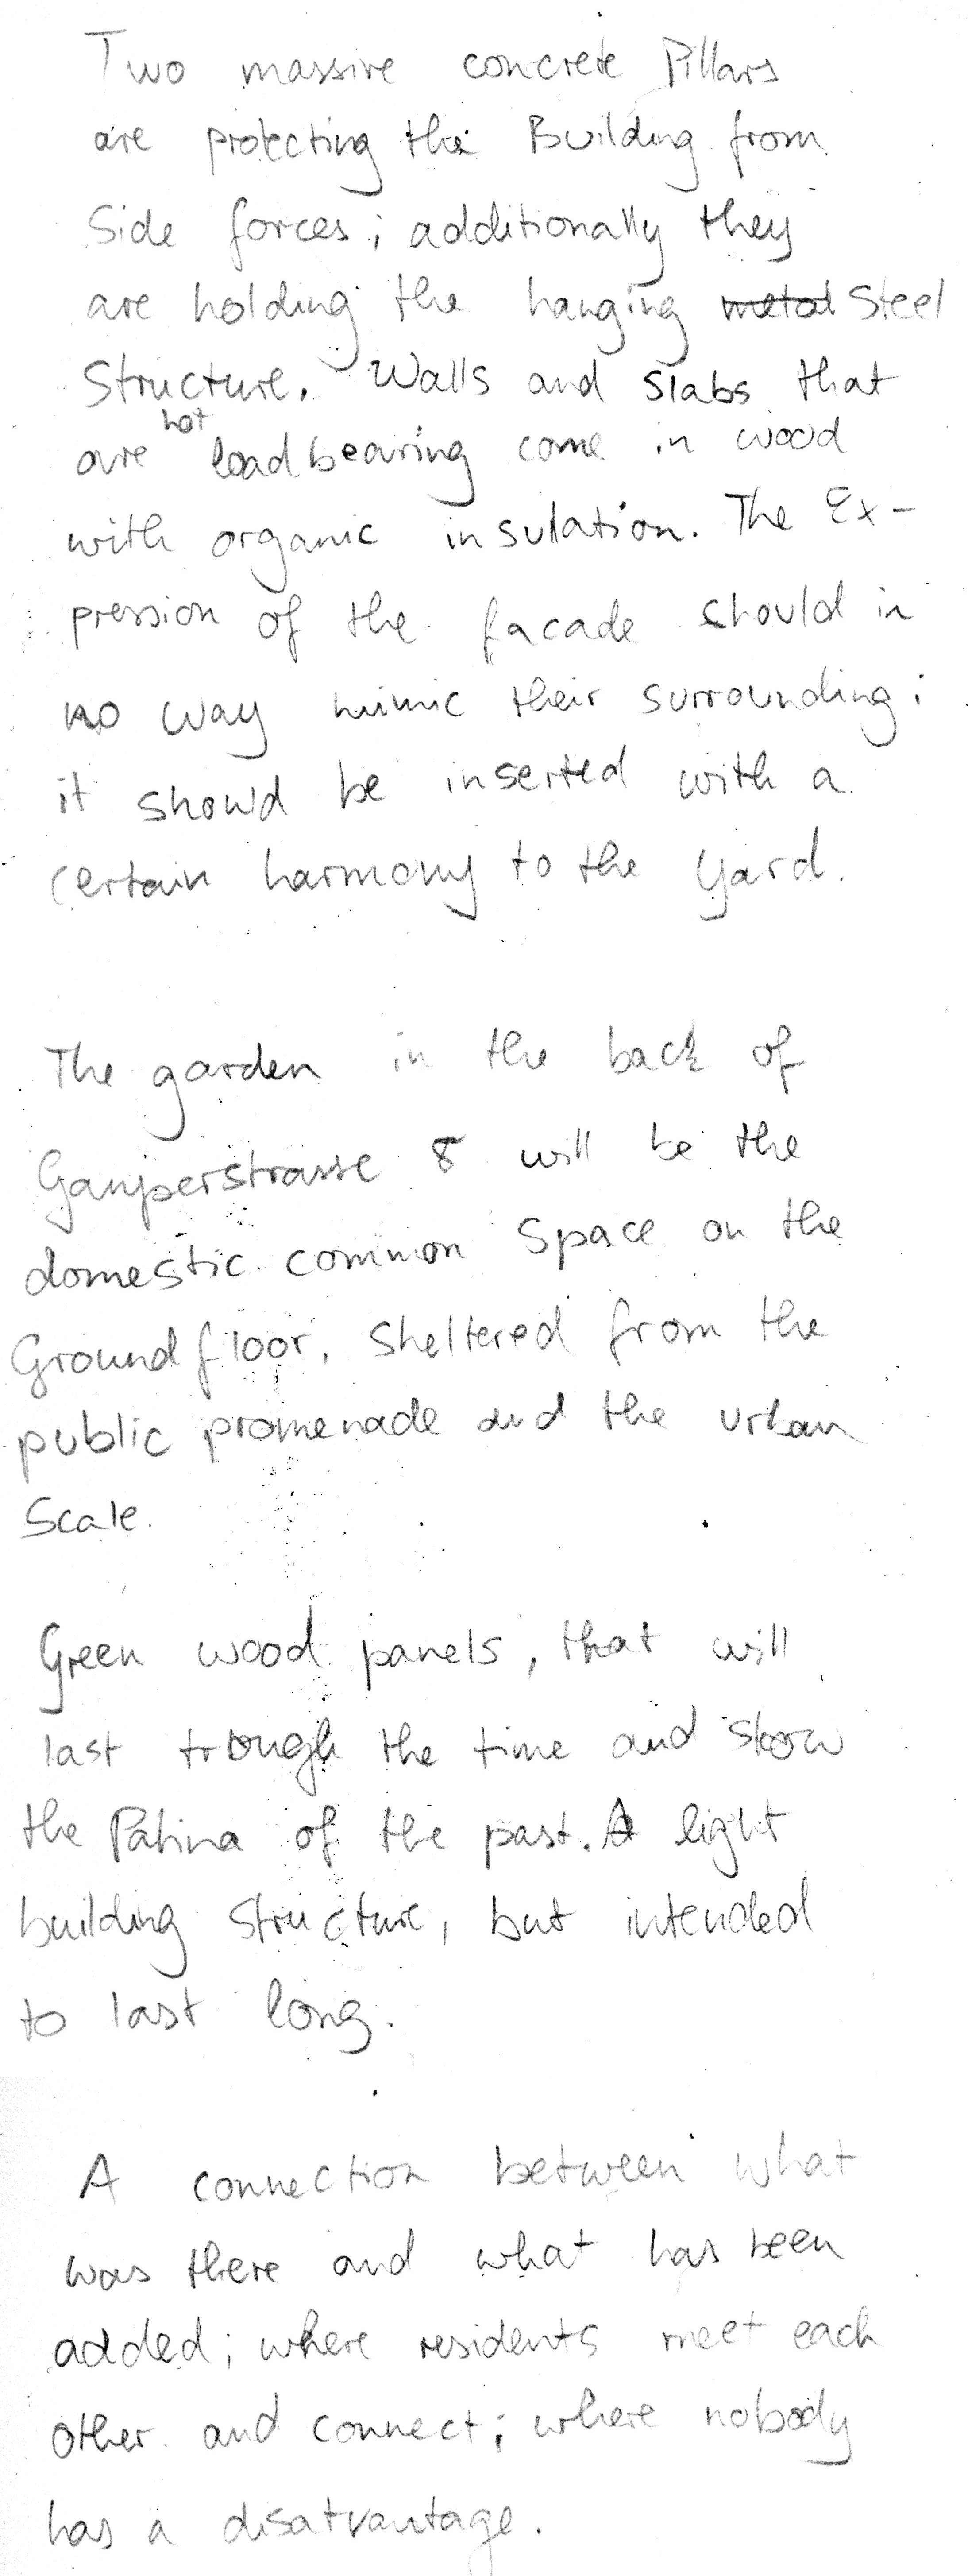 Two massive concrete Pillars
are protecting the Building from
Side forces; additionally they
are holding the hanging metal Steel
Structure. Walls and slabs that
are not loadbearing come in wood
with organic insulation. The Ex-
pression of the facade should in
no way mimic their surrounding;
it should be inserted with a
certain harmony to the yard.
The garden in the back of
Gamperstrasse 8 will be the
domestic common Space on the
Groundfloor, Sheltered from the
public promenade and the urban
Scale.
Green wood panels, that will
last trough the time and show
the Patina of the past. A light
building structure, but intended
to last long.
A connection between what
was there and what has been
added; where residents meet each
other and connect; where nobody
has a disatvantage.